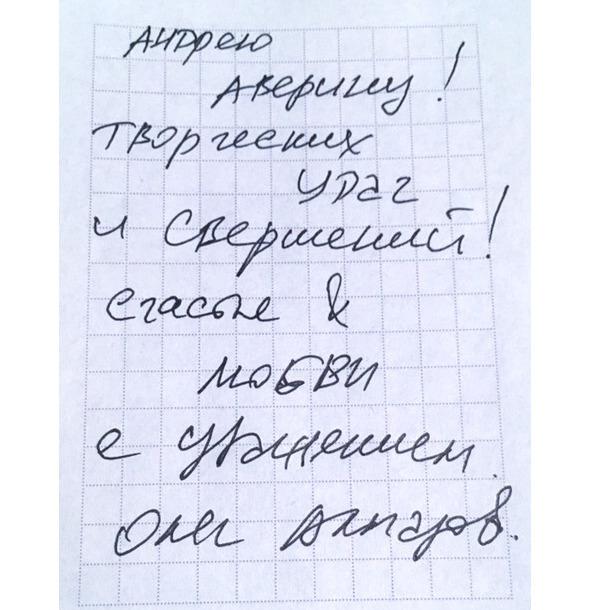 Андрею
Аверину!
творческих
удач
и свершений!
счастье &
любви
с уважением
Олег